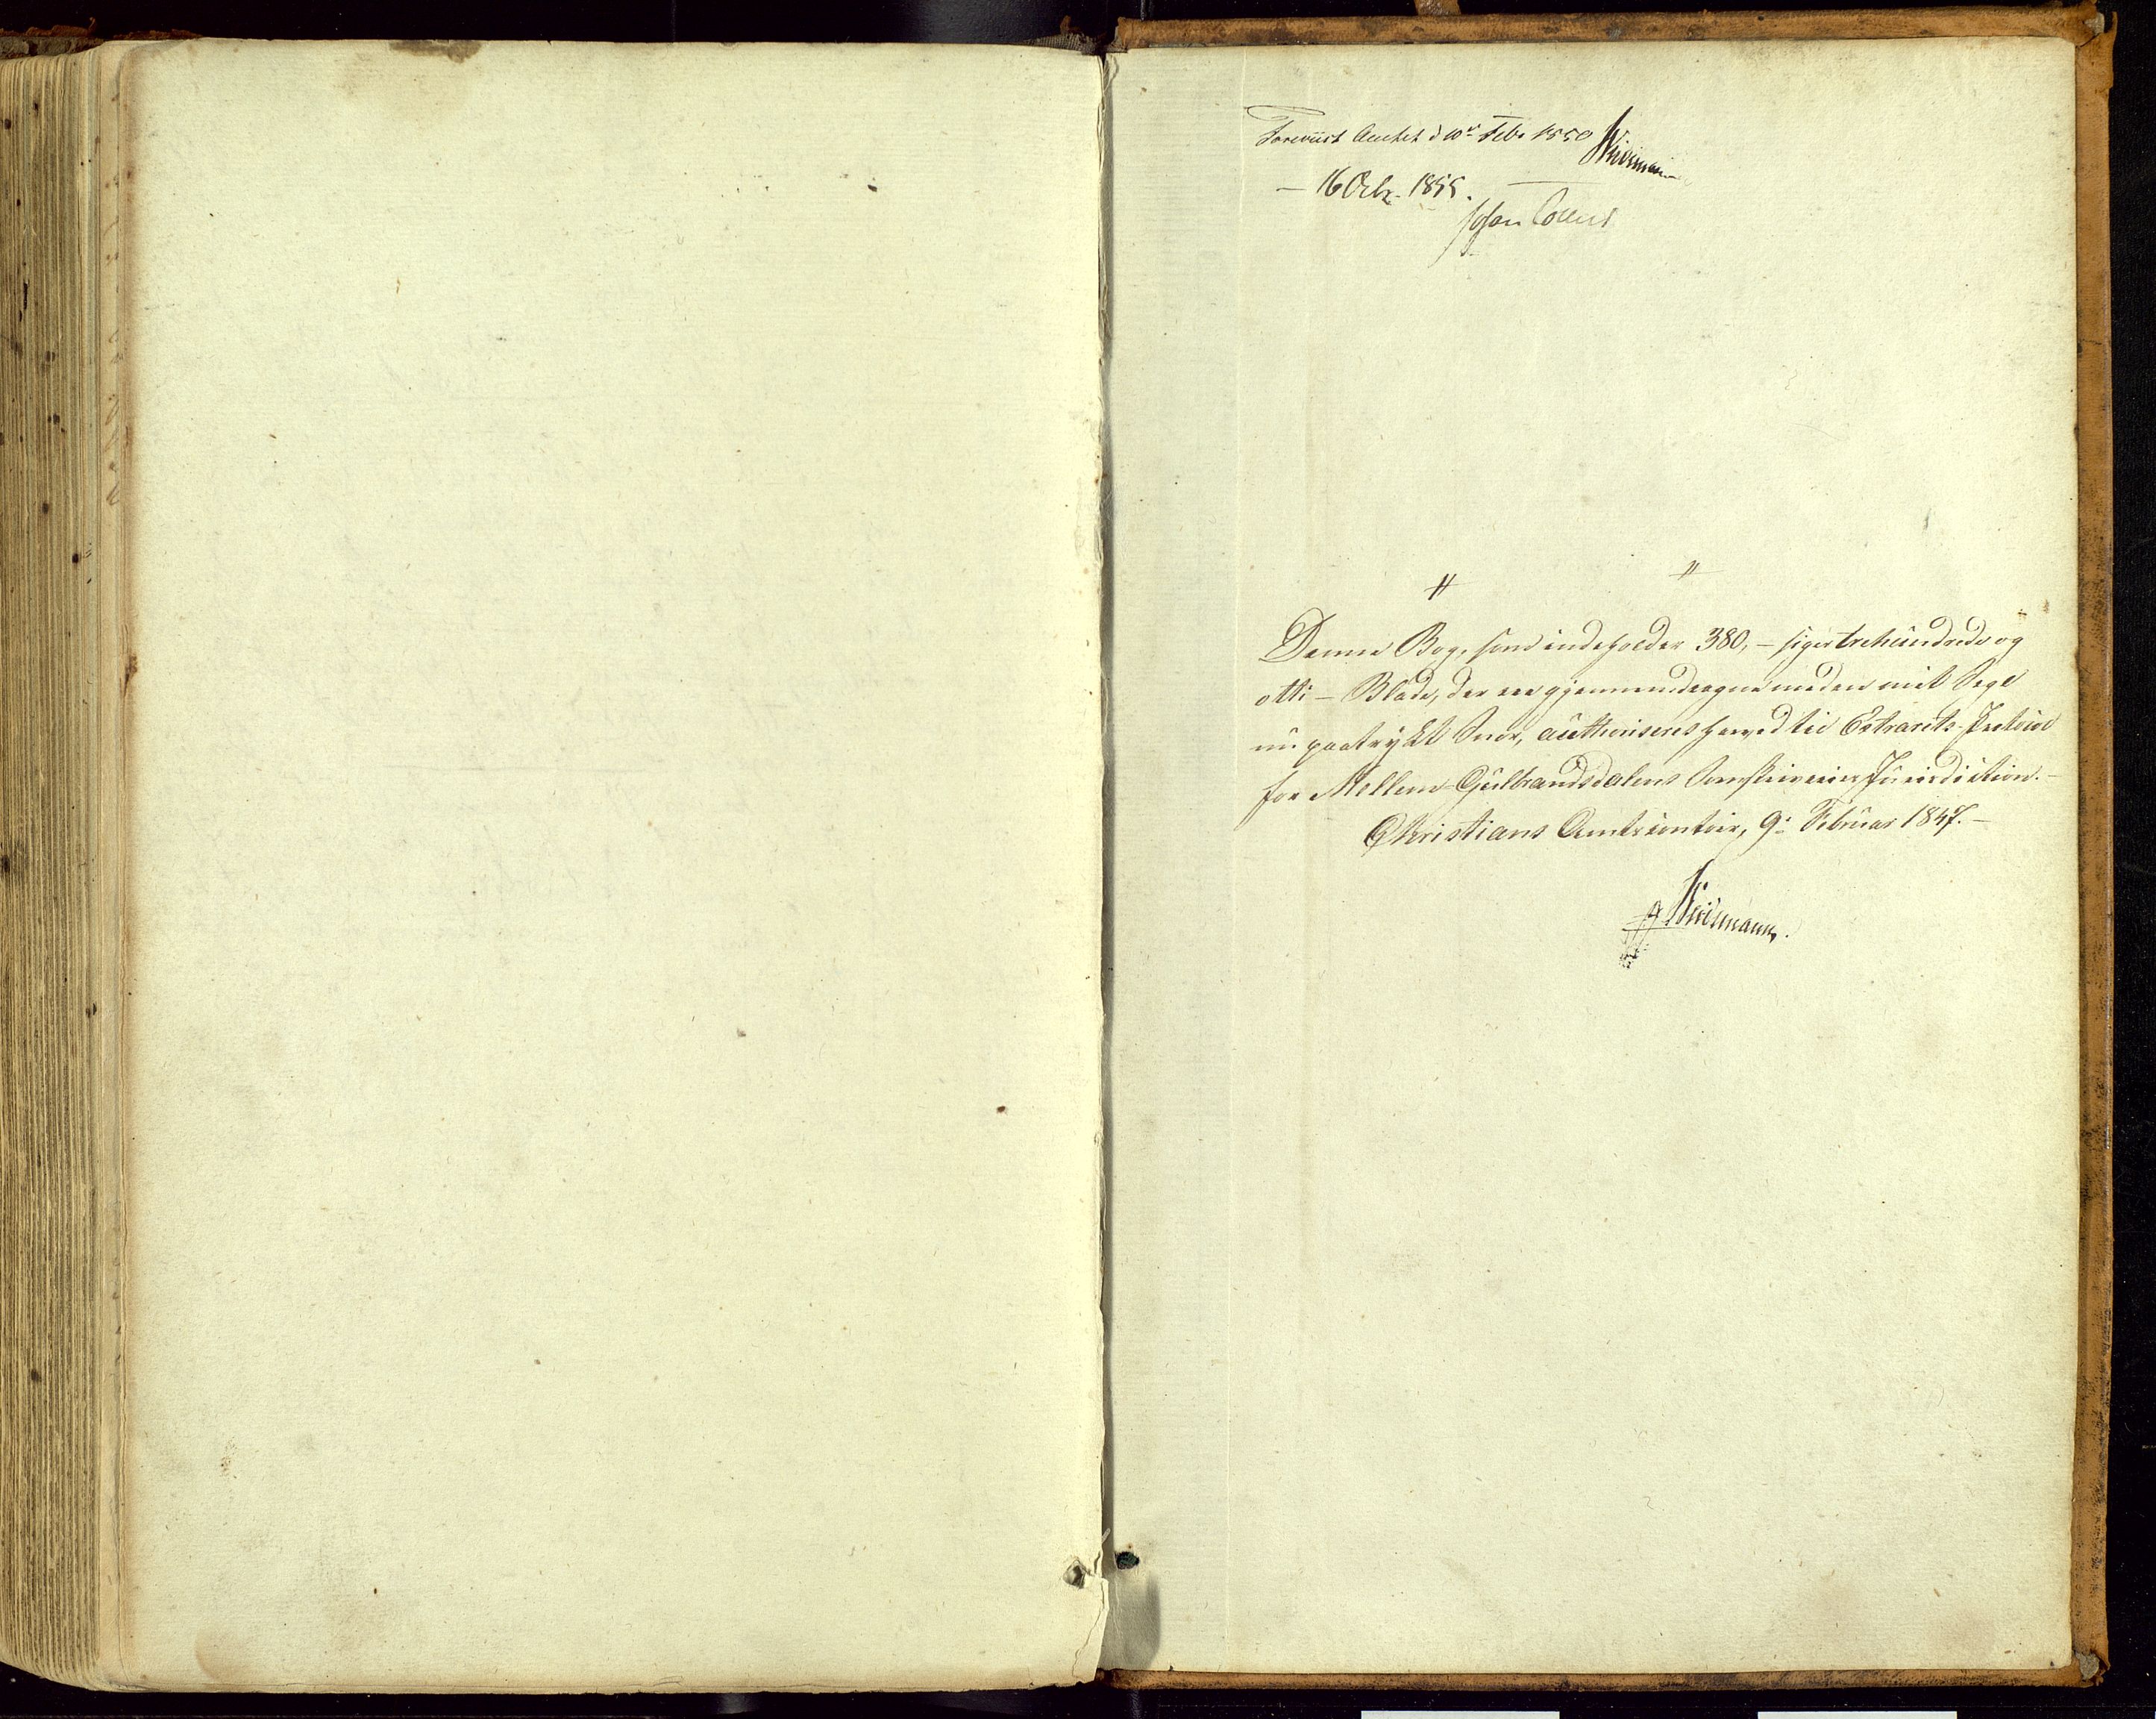 Foreviist Amtet d 10de Febr 1850 Weidemann
— 16 Octbr. 1855.
Johan Collett
Denne Bog, som indeholder 380, – siger trehundrede og
otti – Blade, der ere gjennemdragne med en mit Segl
nu paatrykt Snor, authoriseres herved til Extrarets-Protocol
for Mellem-Gulbrandsdalens Sorenskriveries Jurisdiction. –
Christians Amtscontoir, 9de Februar 1847. –
Weidemann.